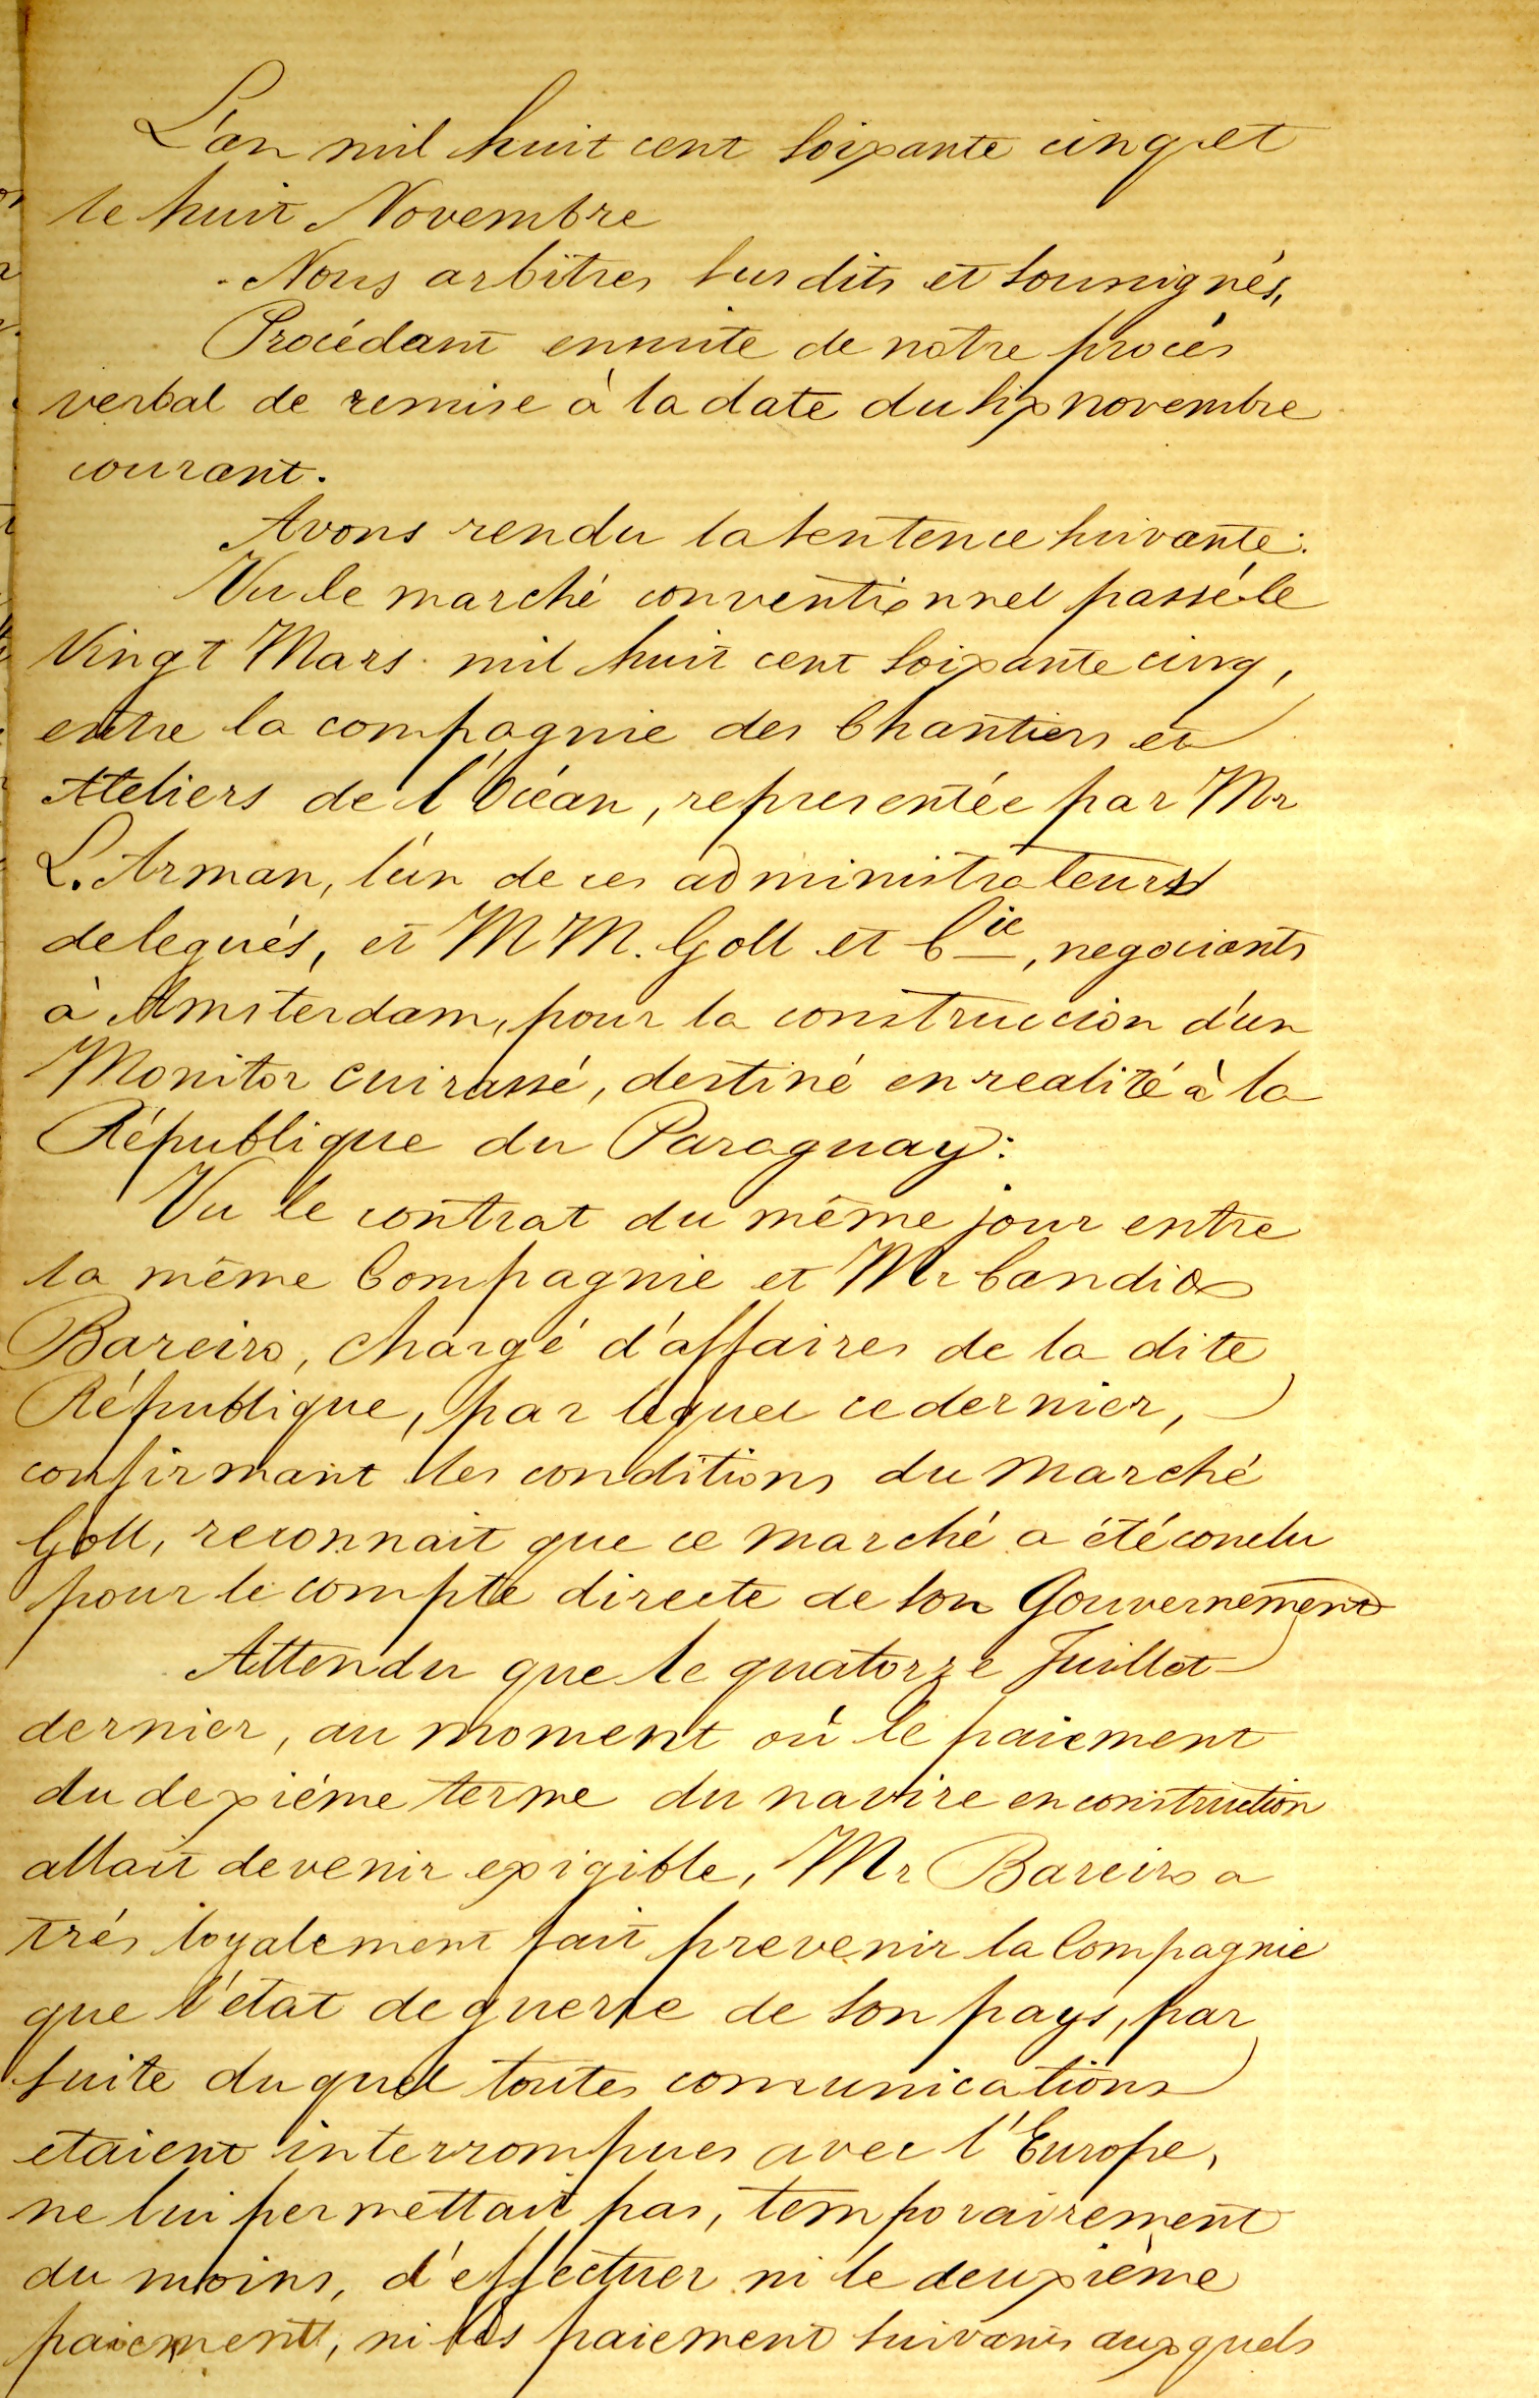 L'an mil huit cent soixante cinq et
le huit Novembre
Nous arbitres susdits et soussignés,
Procédant ensuite de notre procès
verbal de remise à la date du six novembre
courant.
Avons rendu la sentence suivante:
Vu le marché conventionnel passé le
Vingt Mars mil huit cent soixante cinq,
entre la compagnie des Chantiers et
Ateliers de l'Océan, representée par Mr
L. Arman, l'un de ces administrateurs
delegués, et M M. Goll et Cie, negociants
à Amsterdam, pour la construccion d'un
Monitor cuirassé, destiné en realité à la
République du Paraguay:
Vu le contrat du même jour entre
la même Compagnie et Mr Candido
Bareiro, chargé d'affaires de la dite
République, par lequel ce dernier,
confirmant les conditions du marché
Goll, reconnait que ce marché a été conclu
pour le compte directe de son Gouvernement
Attendu que le quatorze Juillet
dernier, au moment où le paiement
du dexiéme terme du navire en construction
allait devenir exigible, Mr Bareiro a
trés loyalement fait prevenir la Compagnie
que l'état de guerre de son pays, par
suite du quel toutes comunications
etaient interrompues avec l'Europe,
ne lui permettait pas, temporairement
du moins, d'effectuer ni le deuxième
paiement, ni les paiement suivants auxquels